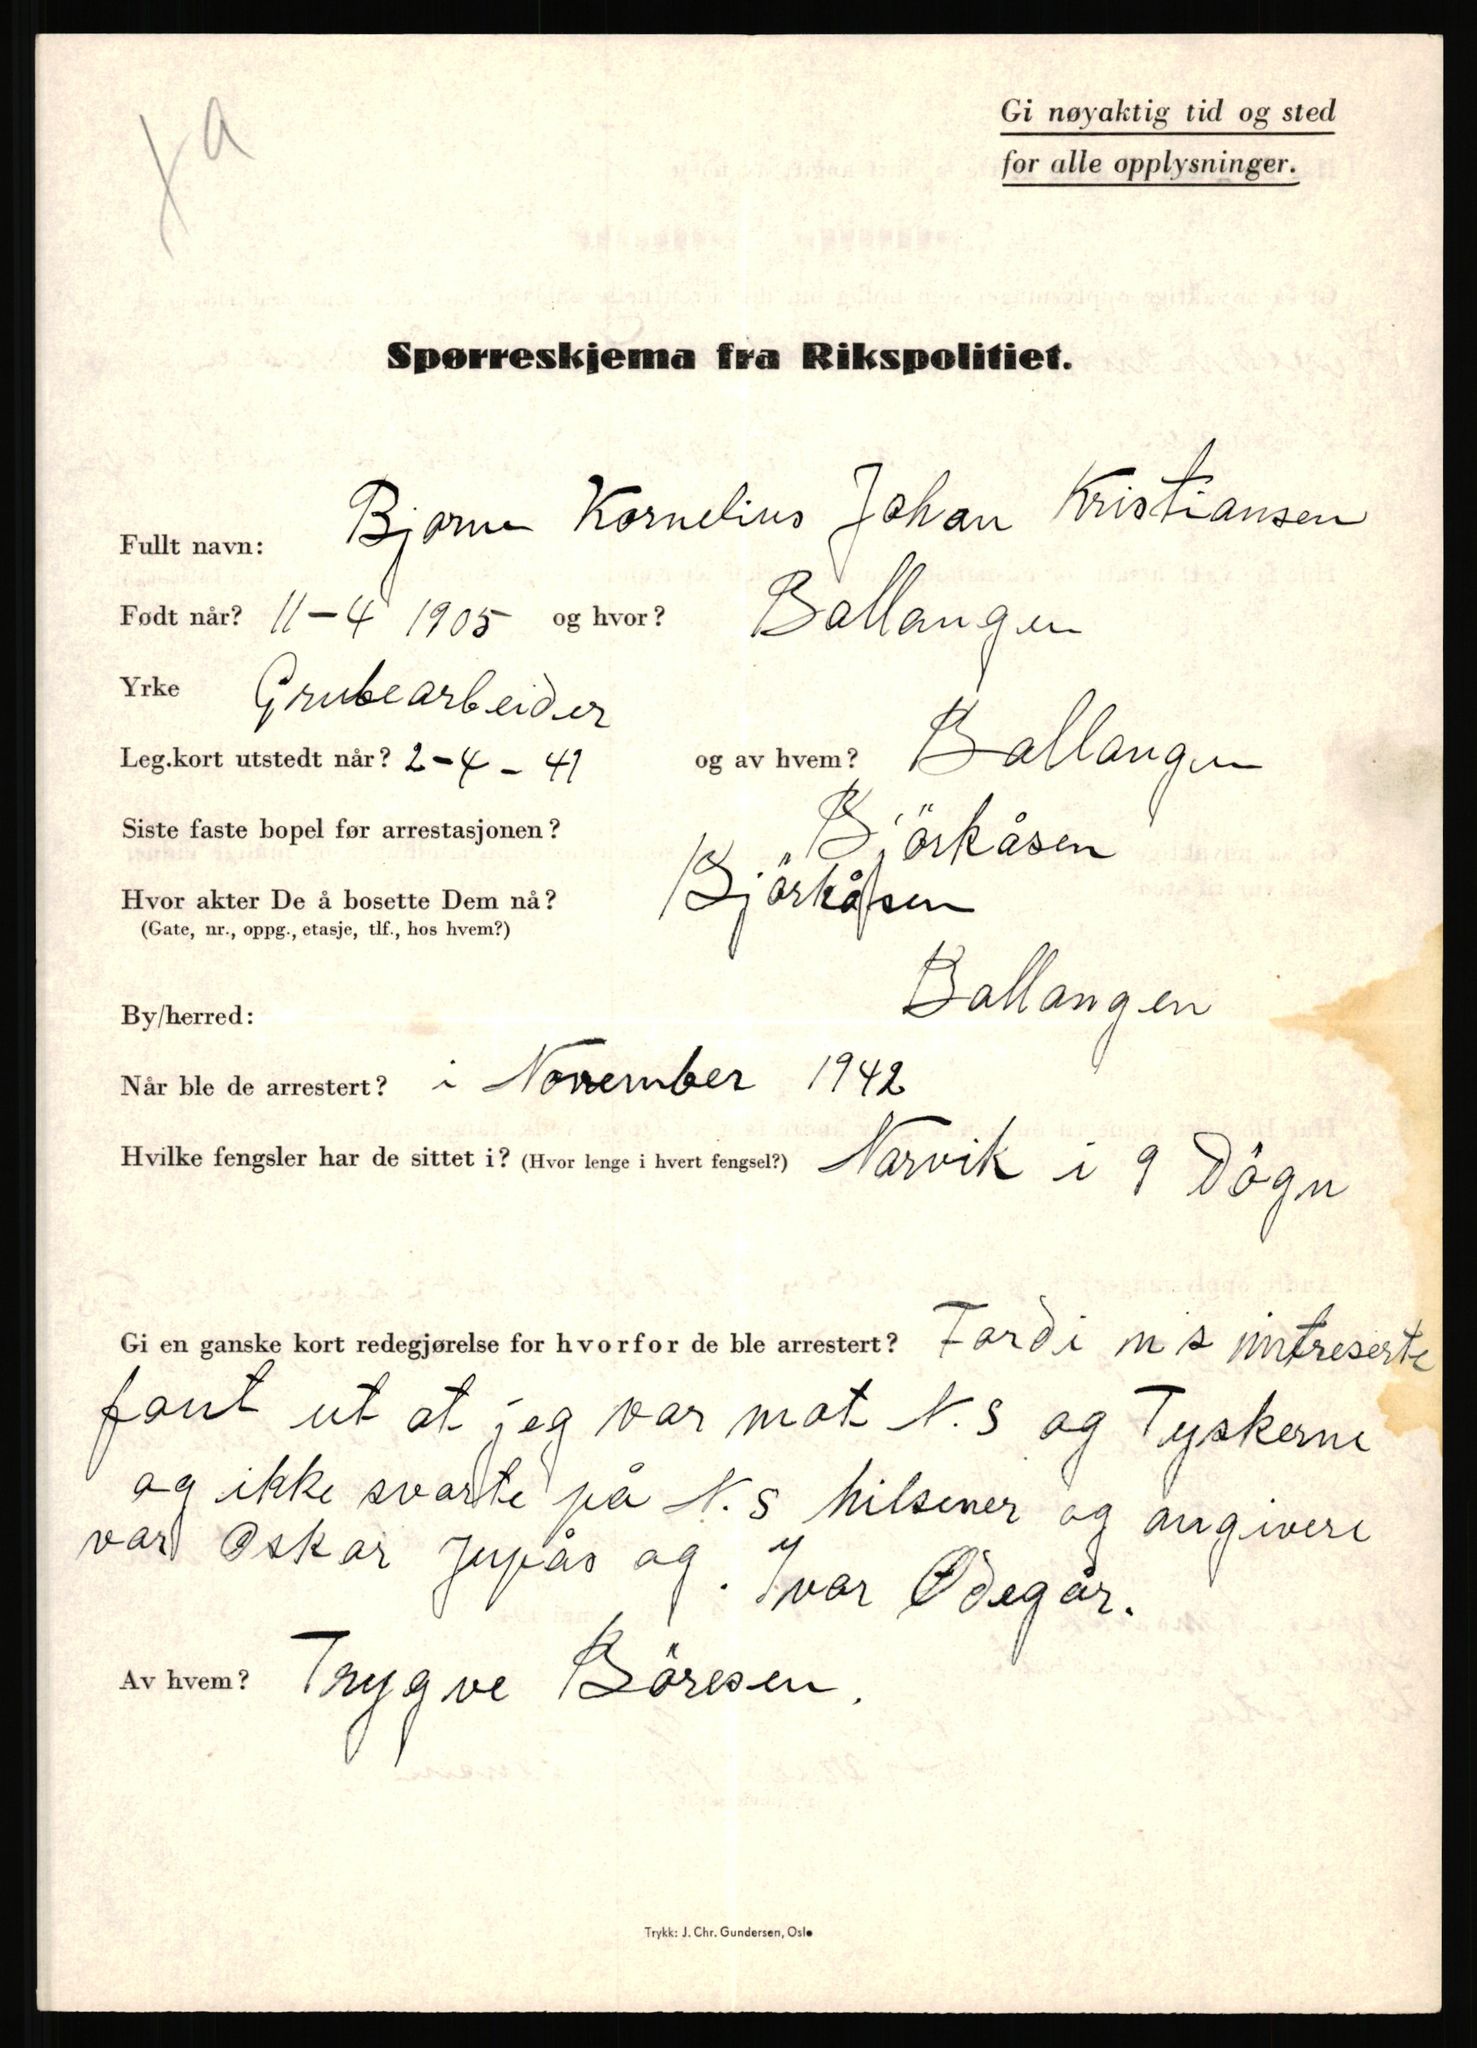 ja
Gi nøyaktig tid og sted
for alle opplysninger.
Spørreskjema fra Rikspolitiet.
Fullt navn: Bjarne Kornelius Johan Kristiansen
Født når? 11-4 1905 og hvor? Ballangen
Yrke Grubearbeider
Leg.kort utstedt når? 2-4-41 og av hvem? Ballangen
Siste faste bopel før arrestasjonen? Björkåsen
Hvor akter De å bosette Dem nå? Björkåsen
(Gate, nr., oppg., etasje, tlf., hos hvem?)
By/herred: Ballangen
Når ble de arrestert? i November 1942
Hvilke fengsler har de sittet i? (Hvor lenge i hvert fengsel?) Narvik i 9 Dögn
Gi en ganske kort redegjørelse for hvorfor de ble arrestert? Fordi n s intreserte
fant ut at jeg var mot N.S og Tyskerne
og ikke svarte på N.S hilsener og angivere
var Oskar og Ivar Ødegår.
Av hvem? Trygve Böresen.
Trykk: J. Chr. Gundersen, Oslo